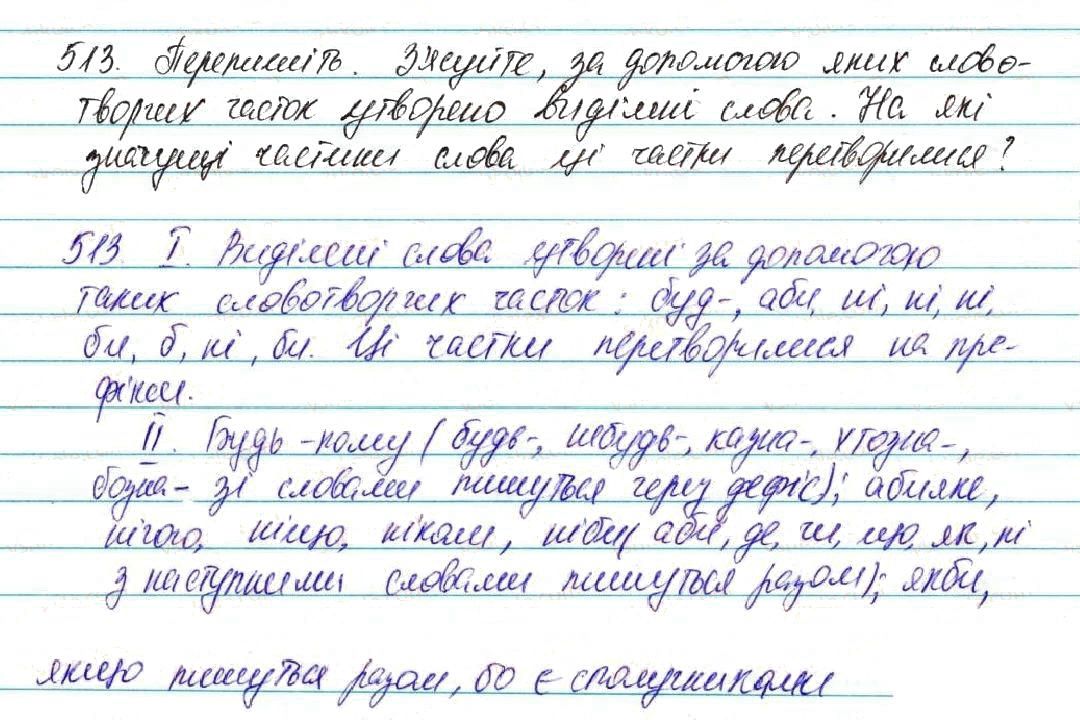 513. Перепишіть. З'ясуйте, за допомогою яких слово-
творчих часток утворено виділені слова. На які
значущі частини слова ці частки перетворилися?
513 I. Виділені слова утворені за допомогою
таких словотворчих часток: буд-, аби, ні, ні, ні,
би, б, ні, би. Ці частки перетворилися на пре-
фікси.
II. Будь-кому (будь-, небудь-, казна-, хтозна-,
бозна- зі словами пишуться через дефіс); абияке,
нічого, ніщо, ніколи, ніби( аби, де, чи, що, як, ні
з наступними словами пишуться разом); якби,
якщо пишуться разом, бо є сполучниками